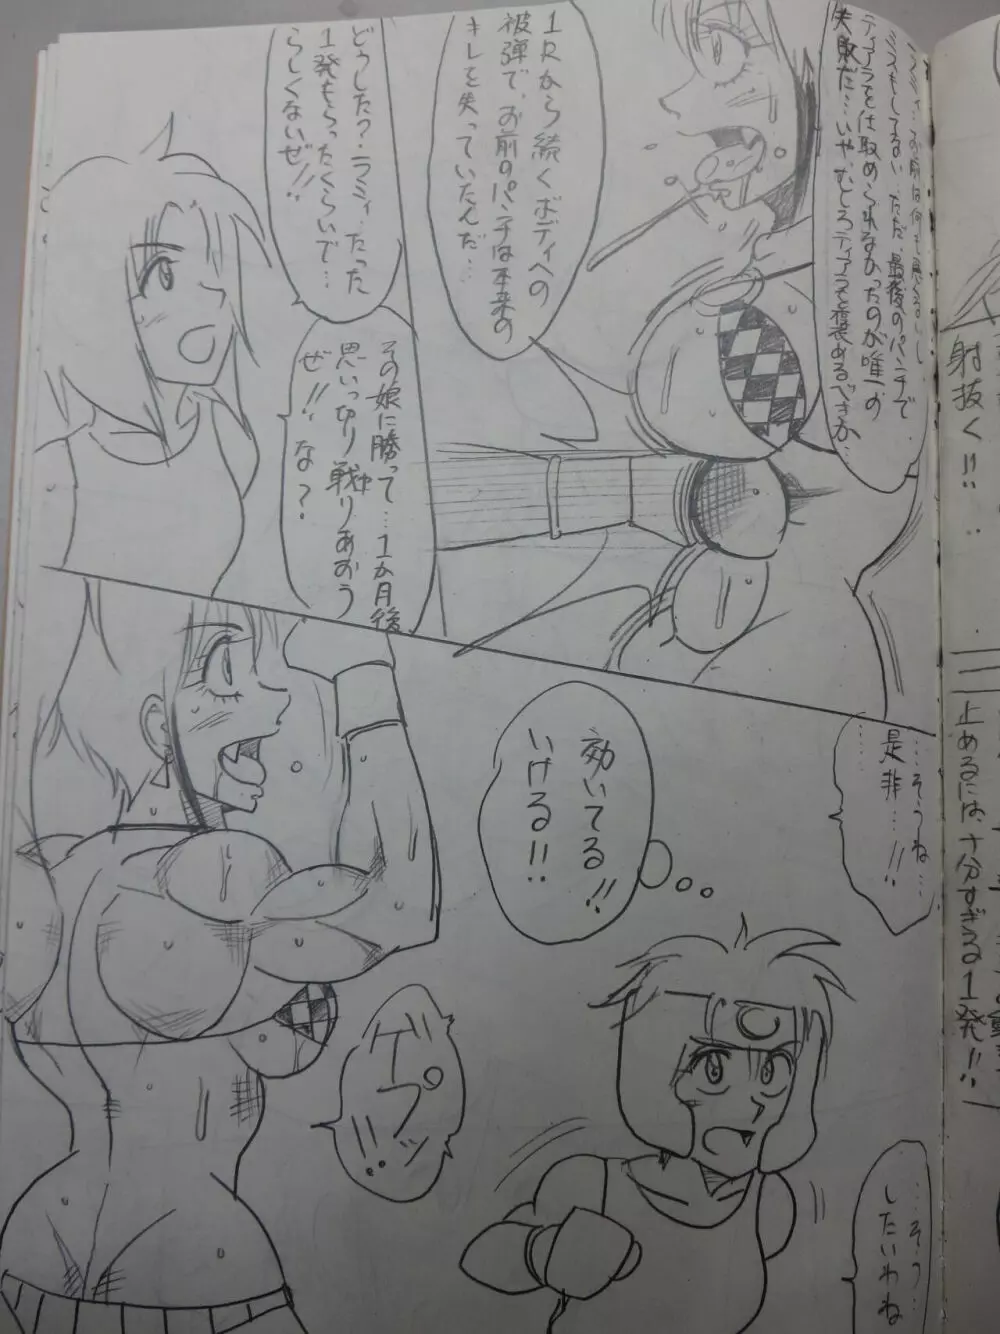 ラミィ…お前は何も悪くないし
ミスもしてない…ただ、最後のパンチで
ティアラをは取められなかったのが唯一の
失敗だ…いや、むしろティアラを褒めるべきか…
1Rから続くボディへの
被弾で、お前のパンチは本来の
キレを失っていたんだ…
どうした?ラミィ…たった
1発もらったくらいで…
らしくないぜ!!
その娘に勝って…1か月後
思いっきり戦りあおう
ぜ!!な?
…そうね…
是非…!!
効いてる!!
いける!!
ゲプッ
…そう…
したいわね
射抜く!!
止めるには、十分すぎる1発!!